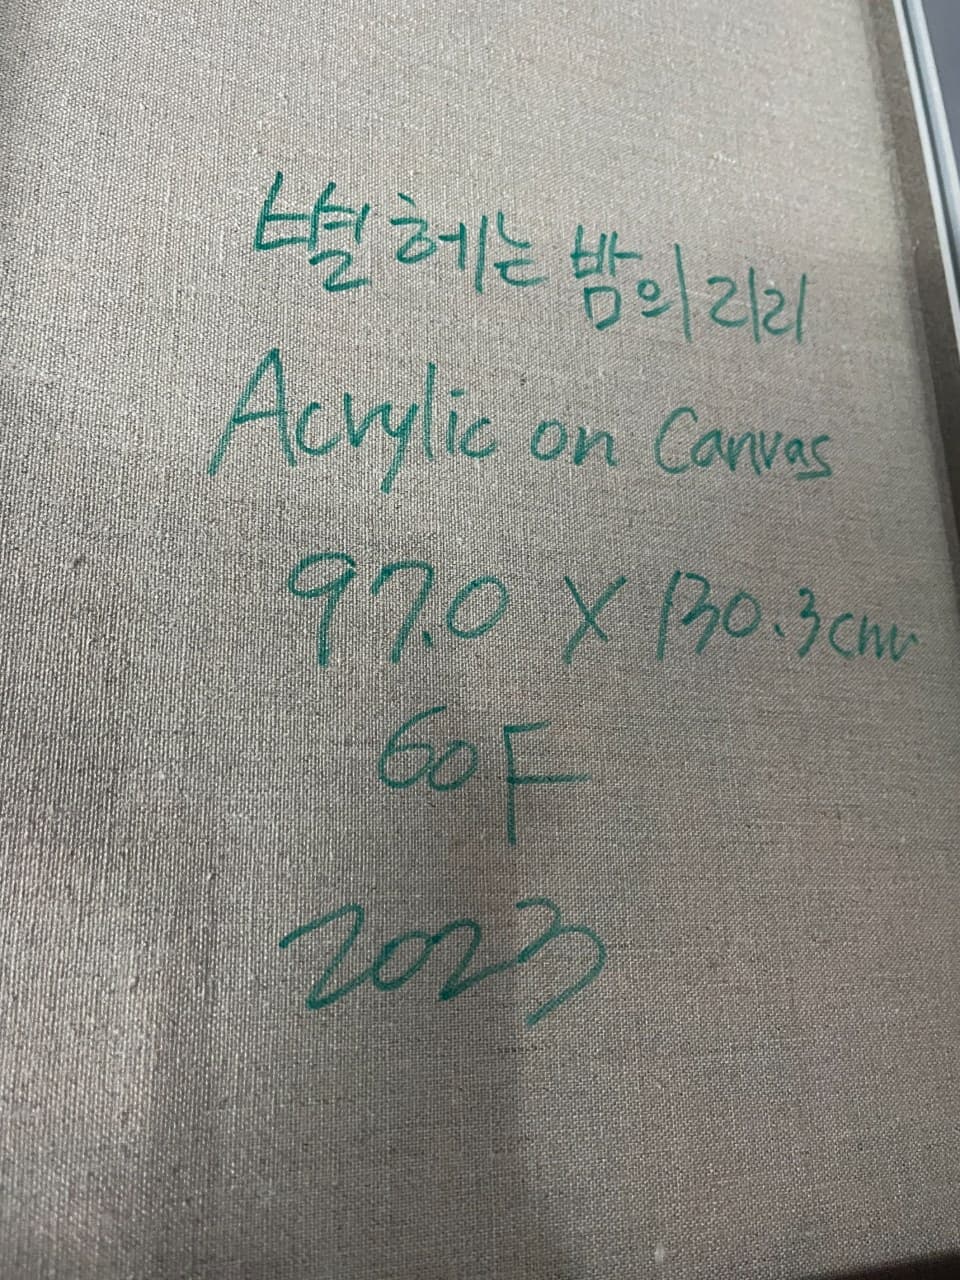 별 헤는 밤의 리리
Acrylic on Canvas
97.0 X 130.3cm
60F
2023